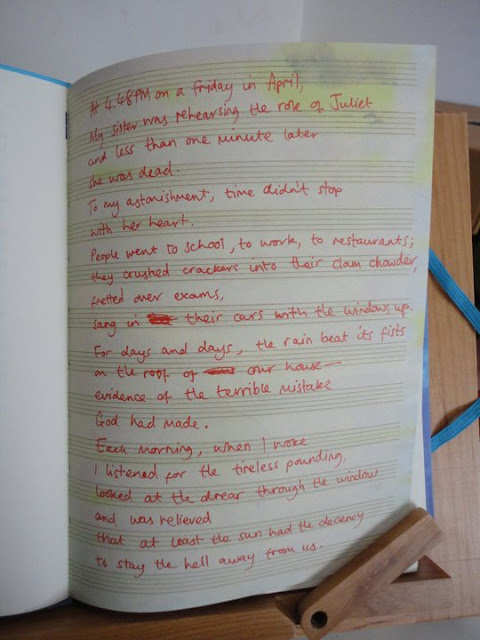 At 4.48PM on a friday in April,
My sister was rehearsing the role of Juliet
and less than one minute later
she was dead.
To my astonishment, time didn't stop
with her heart.
People went to school, to work, to restaurants;
they crushed crackers into their clam chowder,
fretted over exams,
sang in their cars with the windows up.
For days and days, the rain beat its fists
on the roof of our house—
evidence of the terrible mistake
God had made.
Each morning, when I woke
I listened for the tireless pounding,
looked at the drear through the window
and was relieved
that at least the sun had the decency
to stay the hell away from us.